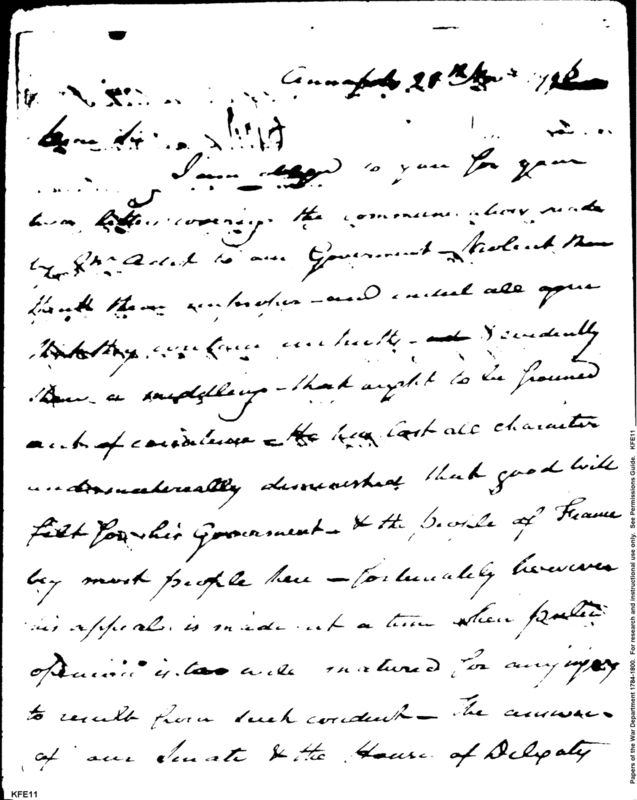 Annapolis 28th Novr 1796
Dear Sir
I am obliged to you for your
two letters covering the communications made
by Mr Adet to our Government - Violent Men
think them - and indeed all agree
that they contain insults - & evidently
shew a meddling - that ought to be frowned
out of countenance - He has lost all character
and materially diminished that good will
felt for his Government - & the people of France
by most people here - fortunately however
his appeal is made at a time when public
opinion is too well matured for any injury
to result from such conduct - The answer
of our Senate & the House of Delegats
KFE11
Papers of the War Department 1784-1800. For research and instructional use only. See Permissions Guide. KFE11